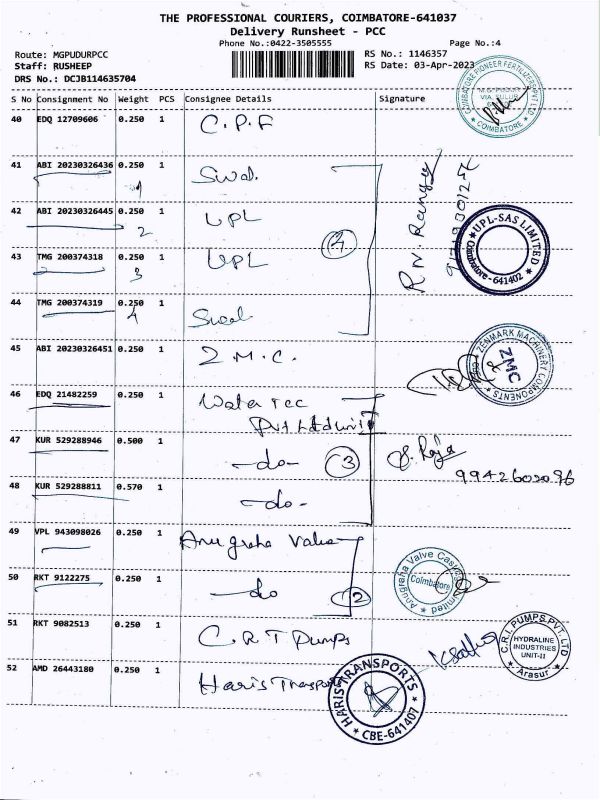 THE PROFESSIONAL COURIERS, COIMBATORE-641037
Delivery Runsheet - PCC
Phone No.:0422-3505555
Page No.:4
Route: MGPUDURPCC
Staff: RUSHEEP
DRS No.: DCJB114635704
RS No.: 1146357
RS Date: 03-Apr-2023
S No Consignment No Weight PCS Consignee Details Signature
40 EDQ 12709606 0.250 1 C.P.F
COIMBATORE PIONEER FERTILIZERS PVT LTD
COIMBATORE
41 ABI 20230326436 0.250 1 Swal.
1
42 ABI 20230326445 0.250 1 UPL
2
43 TMG 200374318 0.250 1 UPL
3
4
UPL-SAS LIMITED
Coimbatore - 641402
44 TMG 200374319 0.250 1 Swal
4
45 ABI 20230326451 0.250 1 Z.M.C.
ZENMARK MACHINERY COMPONENTS
ZMC
46 EDQ 21482259 0.250 1 Water Tec
Pvt Ltd unit
47 KUR 529288946 0.500 1 -do- 3
Raja
9942602096
48 KUR 529288811 0.570 1 -do-
49 VPL 943098026 0.250 1 Anugraha Valve
50 RKT 9122275 0.250 1 -do 2
Anugraha Valve Castings Limited
Coimbatore
51 RKT 9082513 0.250 1 C.R.I Pumps
C.R.I. PUMPS PVT. LTD
HYDRALINE
INDUSTRIES
UNIT-II
Arasur
52 AMD 26443180 0.250 1 Haris Transport
HARIS TRANSPORTS
CBE-641407